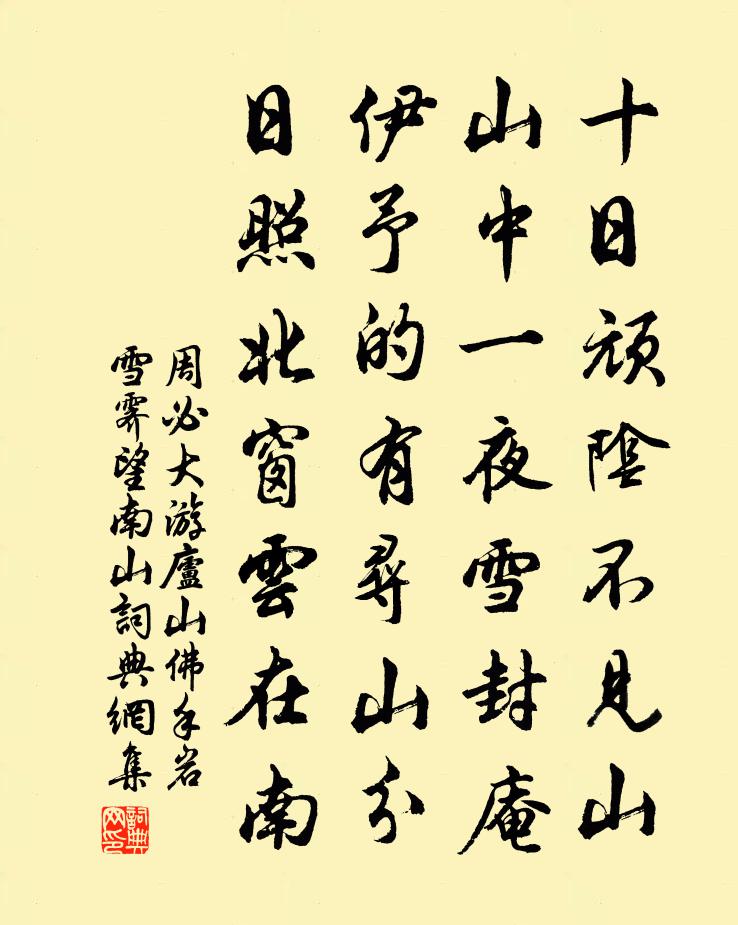 十日頑陰不見山
山中一夜雪封庵
伊予的有尋山分
日照北窗雲在南
周必大游廬山佛手岩
雪霽望南山詞典網集
詞典
网印